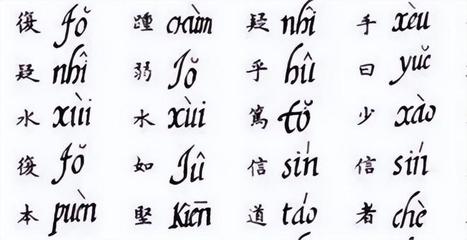 復 jǒ 踵 chùm 疑 nhî 手 xèu
疑 nhî 弱 Jǒ 乎 hû 曰 yuě
水 xùi 水 xùi 篤 tǒ 少 xào
復 Jǒ 如 Jû 信 sín 信 sín
本 puèn 堅 Kiēn 道 táo 者 chè